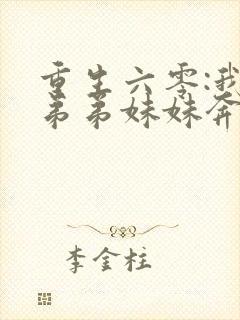 重生六零:我
弟弟妹妹奔
李金柱